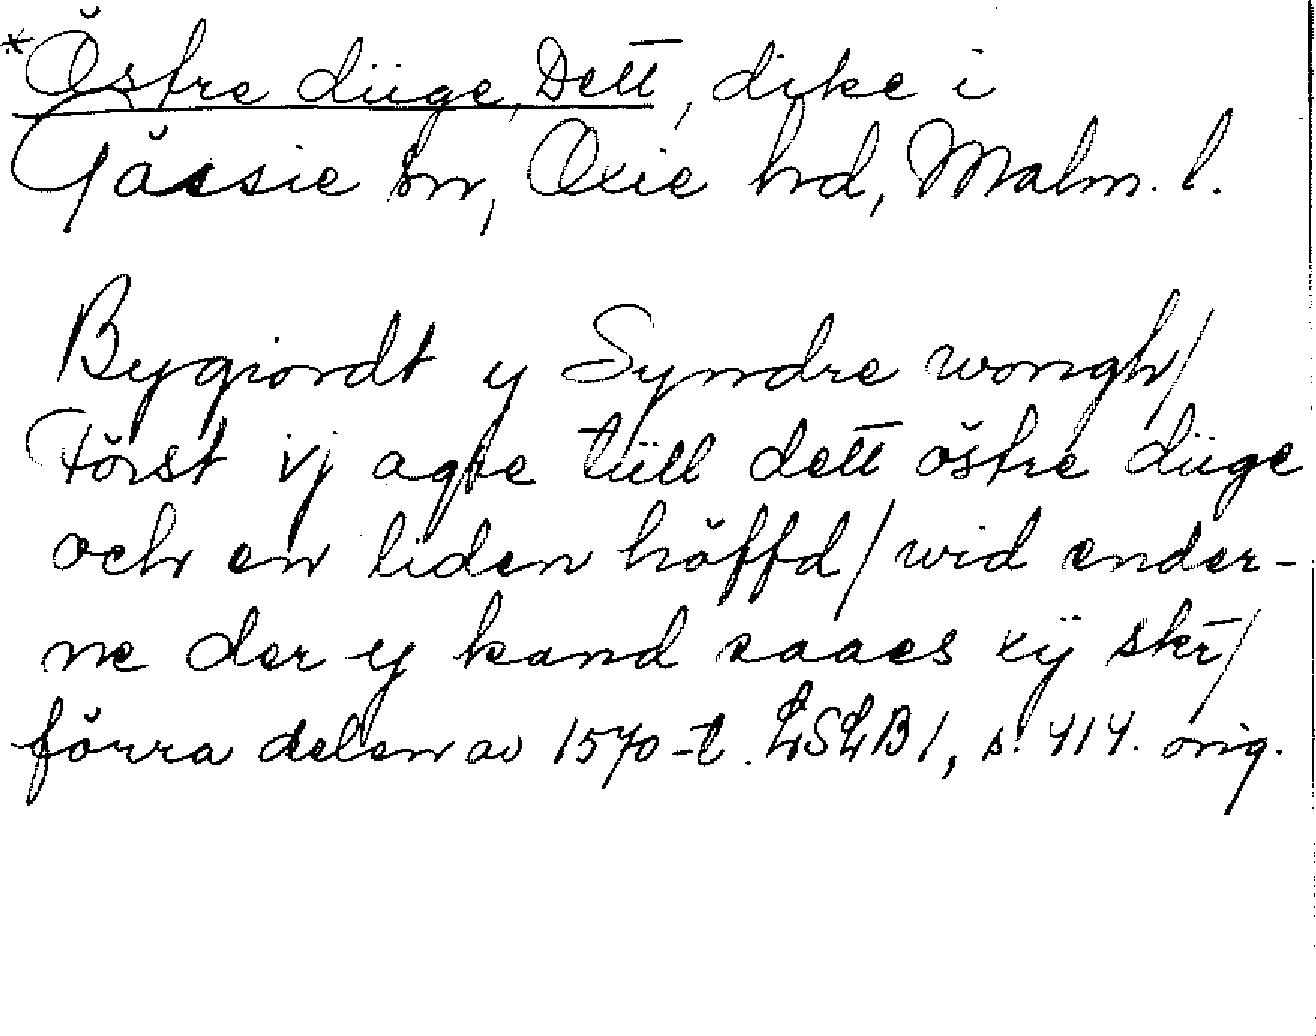 *Östre düge, Dett, dike i
Gåssie sn, Oxie hd, Malm. l.
Bygiordt y Syndre wongh/
Först vj agre tüll dett östre düge
och en liden höffd/ wid ender-
ne der y kand saaes xij skr/
förra delen av 1570-t. LSLB 1, s. 414. orig.